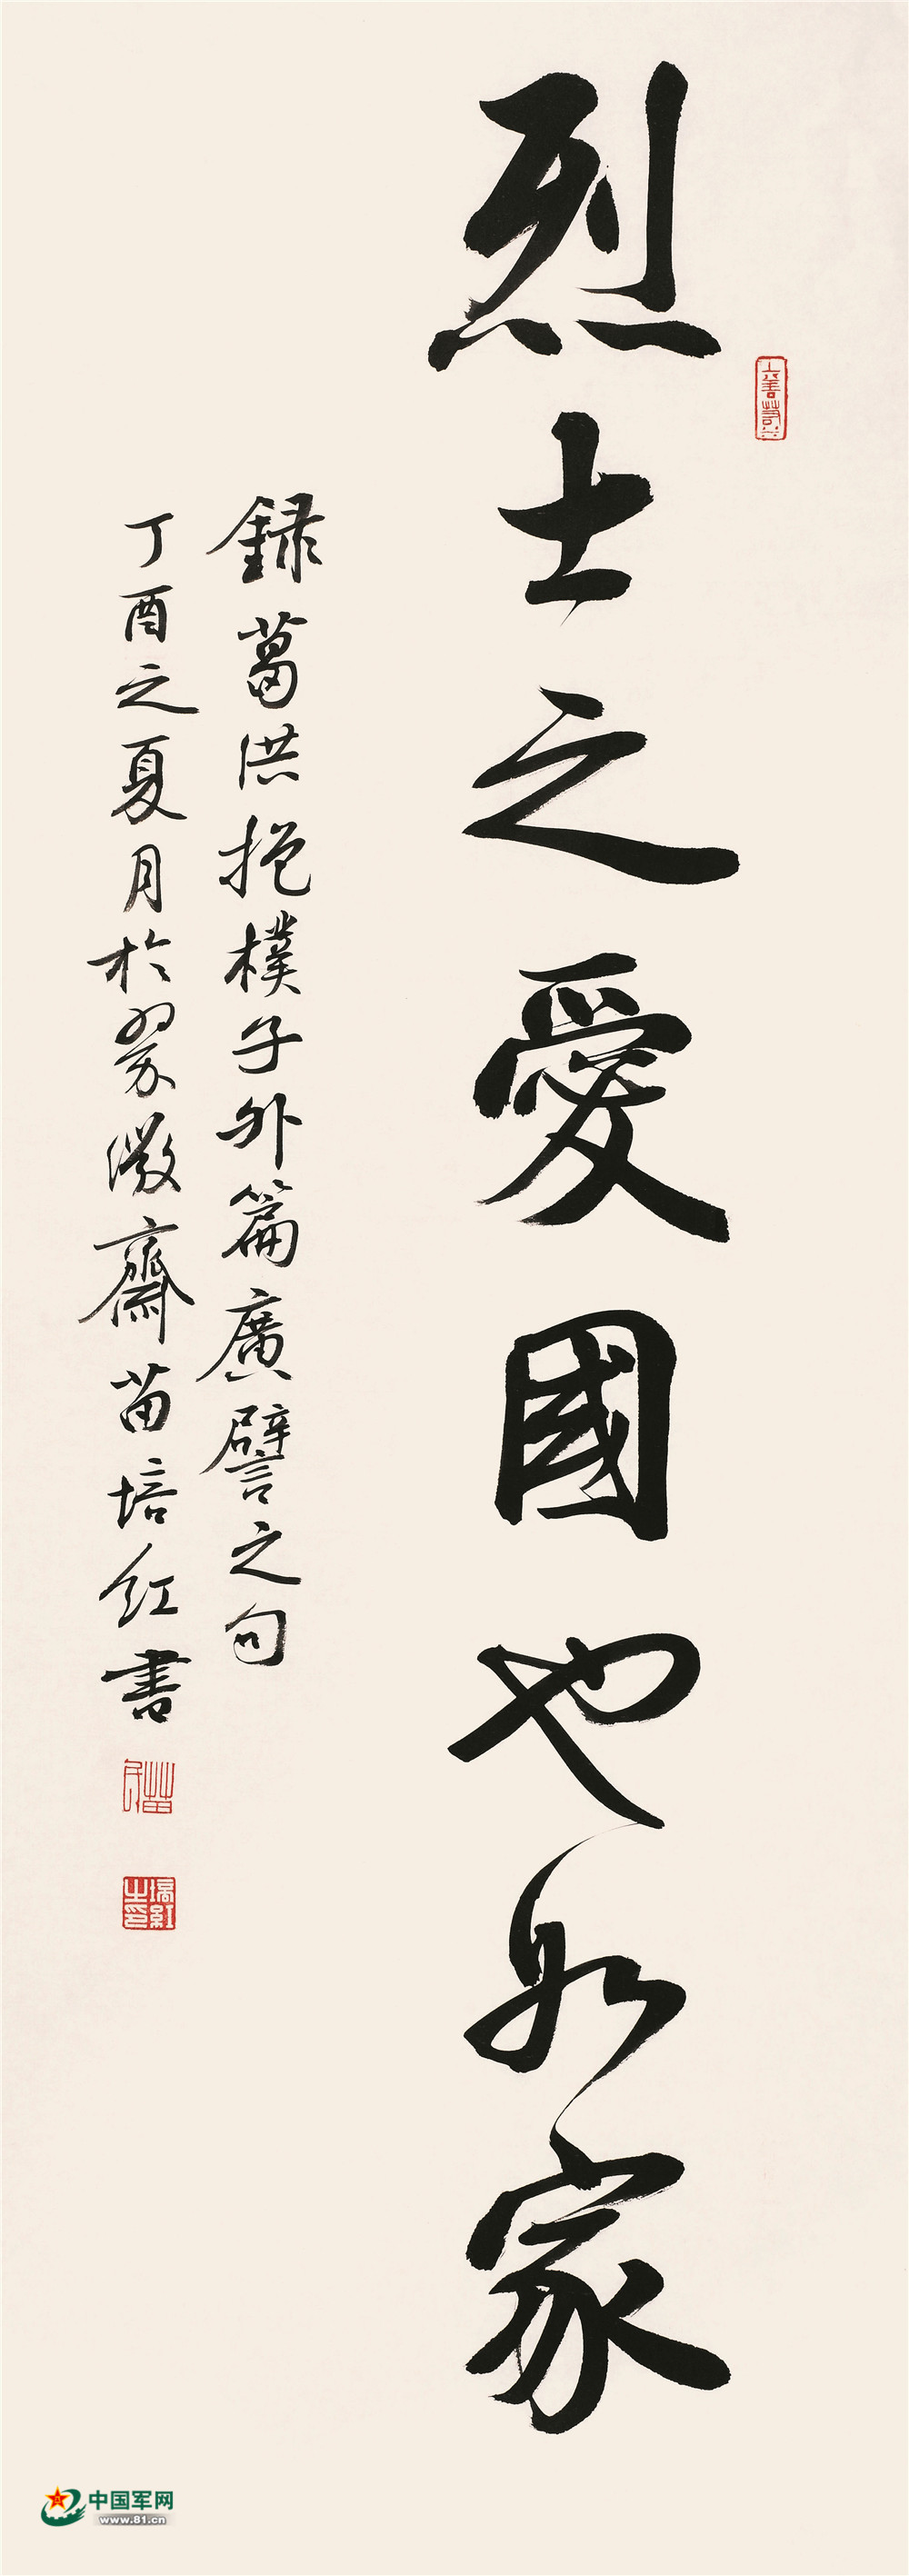 烈士之愛國也如家
錄葛洪抱樸子外篇廣譬之句
丁酉之夏月於翠微齋苗培紅書
上善若水
苗
培紅之印
中国军网
www.81.cn